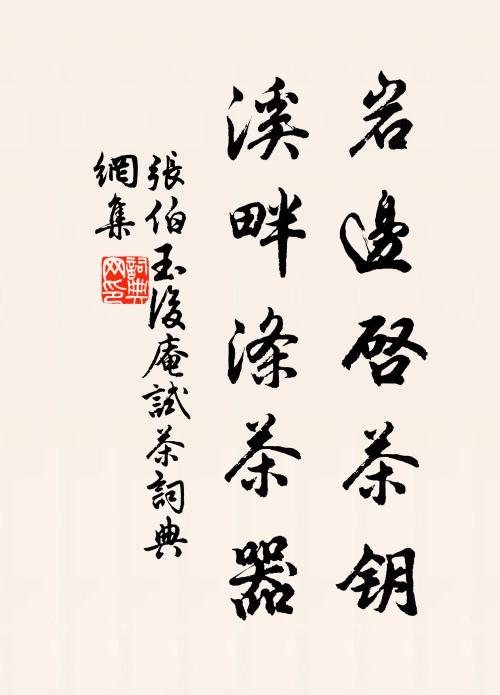 岩邊啓茶钥
溪畔滌茶器
張伯玉後庵試茶詞典
網集
詞典
网印